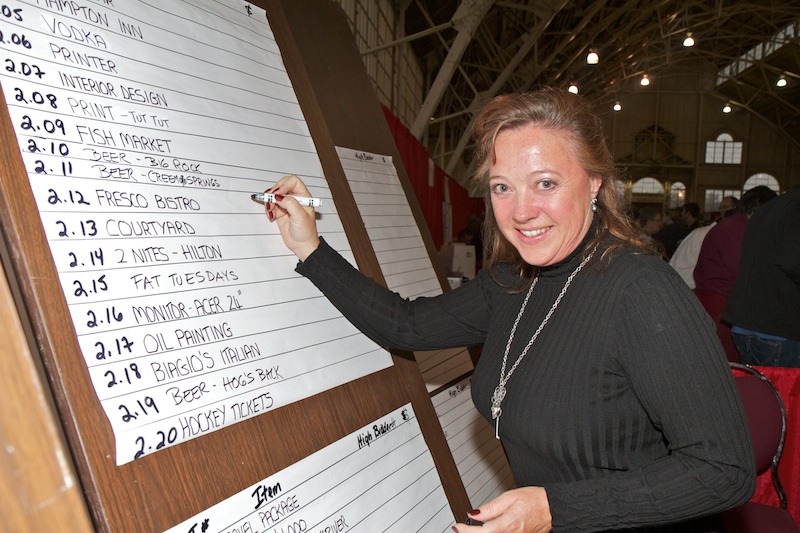 HAMPTON INN $
.05 VODKA
2.06 PRINTER
2.07 INTERIOR DESIGN
2.08 PRINT - TUT TUT
2.09 FISH MARKET
2.10 BEER - BIG ROCK
2.11 BEER - CREEMORE SPRINGS
2.12 FRESCO BISTRO
2.13 COURTYARD
2.14 2 NITES - HILTON
2.15 FAT TUESDAYS
2.16 MONITOR - ACER 24"
2.17 OIL PAINTING
2.18 BIAGIO'S ITALIAN
2.19 BEER - HOG'S BACK
2.20 HOCKEY TICKETS
High Bidder
High Bidder# $
Item
I#
VEL PACKAGE
LOOD
RIVER